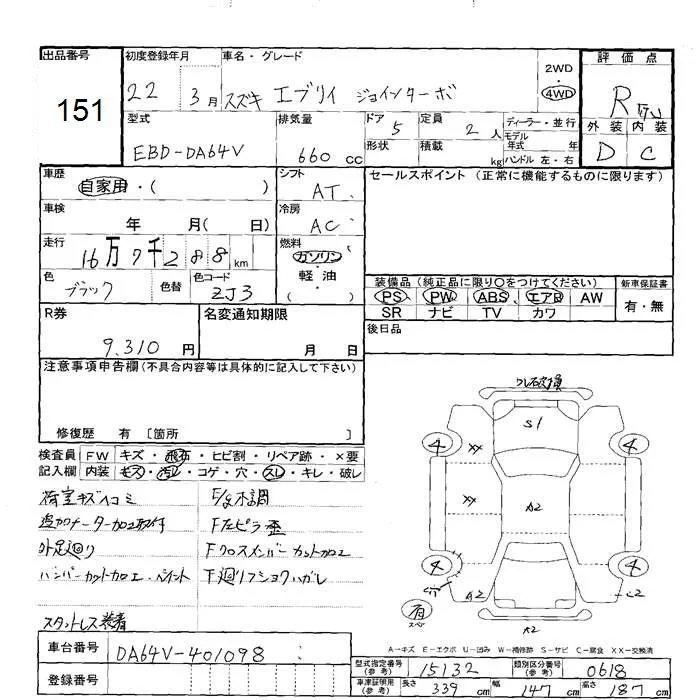 出品番号 初度登録年月 車名・グレード 評価点
151
22 3月 スズキ エブリイ ジョインターボ 2WD・4WD R
型式 排気量 ドア 5 定員 2人 ディーラー・並行 外装 内装
EBD-DA64V 660cc 形状 積載 kg モデル年式 年 ハンドル 左・右 D C
車歴 自家用・( ) シフト AT セールスポイント (正常に機能するものに限ります)
車検 年 月( 日) 冷房 AC
走行 16万7千288km 燃料 ガソリン・軽油( )
色 ブラック 色替 色コード ZJ3
装備品 (純正品に限り○をつけてください) 新車保証書
PS PW ABS エアB AW 有・無
SR ナビ TV カワ
R券 9,310円 名変通知期限 月 日 後日品
注意事項申告欄(不具合内容等は具体的に記入して下さい)
修復歴 有 〔箇所 〕
検査員 FW キズ・飛石・ヒビ割・リペア跡・×要
記入欄 内装 キズ・汚レ・コゲ・穴・スレ・キレ・破レ
荷室キズヘコミ E/g不調
追加メーター加工取付 F左ピラ歪
外足廻り Fクロスメンバーカット加工
バンパーカット加工・ペイント 下廻リフショクハガレ
スタットレス装着
S1
4 XX 4
XX A2
4 4
A2 C2
有 スペア
A2
A-キズ E-エクボ U-凹み W-補修跡 S-サビ C-腐食 XX-交換済
車台番号 DA64V-401098
登録番号
型式指定番号(参考) 15132 類別区分番号(参考) 0618
車庫証明用(参考) 長さ 339cm 幅 147cm 高さ 187cm